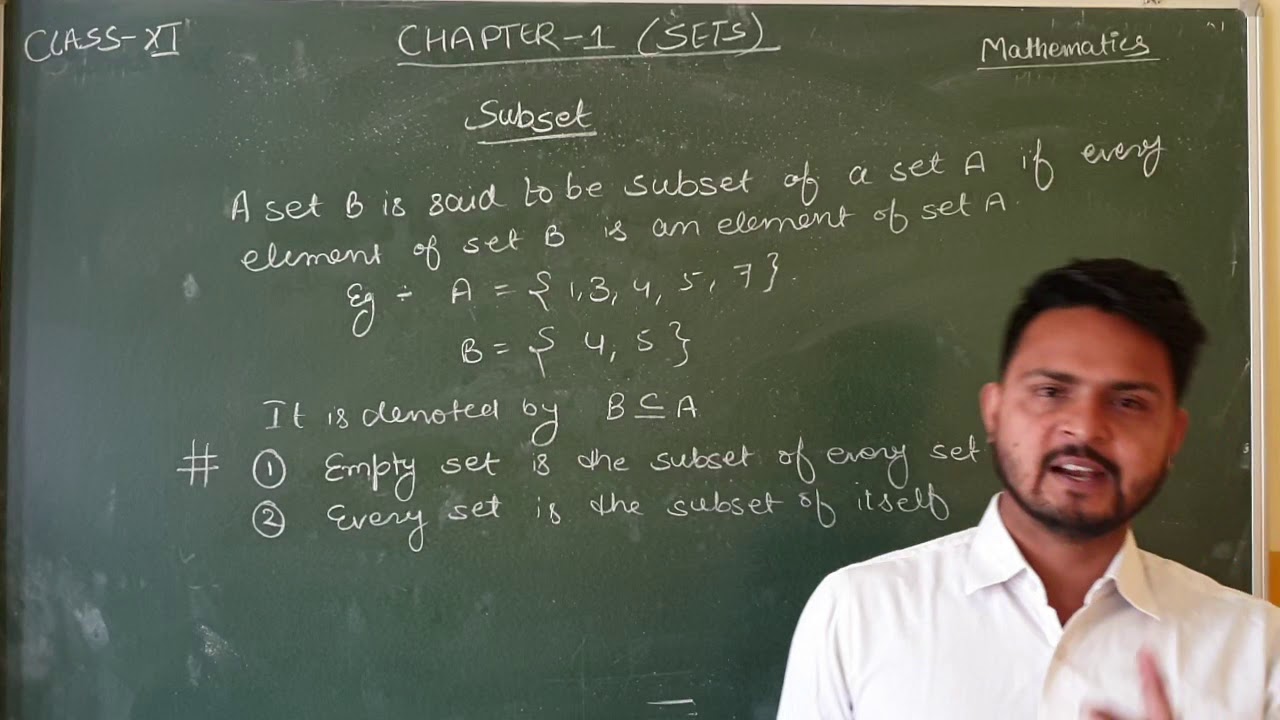 CLASS-XI
CHAPTER-1 (SETS)
Mathematics
Subset
A set B is said to be subset of a set A if every
element of set B is an element of set A.
Eg ÷ A = { 1,3, 4, 5, 7}.
B = { 4, 5 }
It is denoted by B ⊆ A
# ① Empty set is the subset of every set
② Every set is the subset of itself